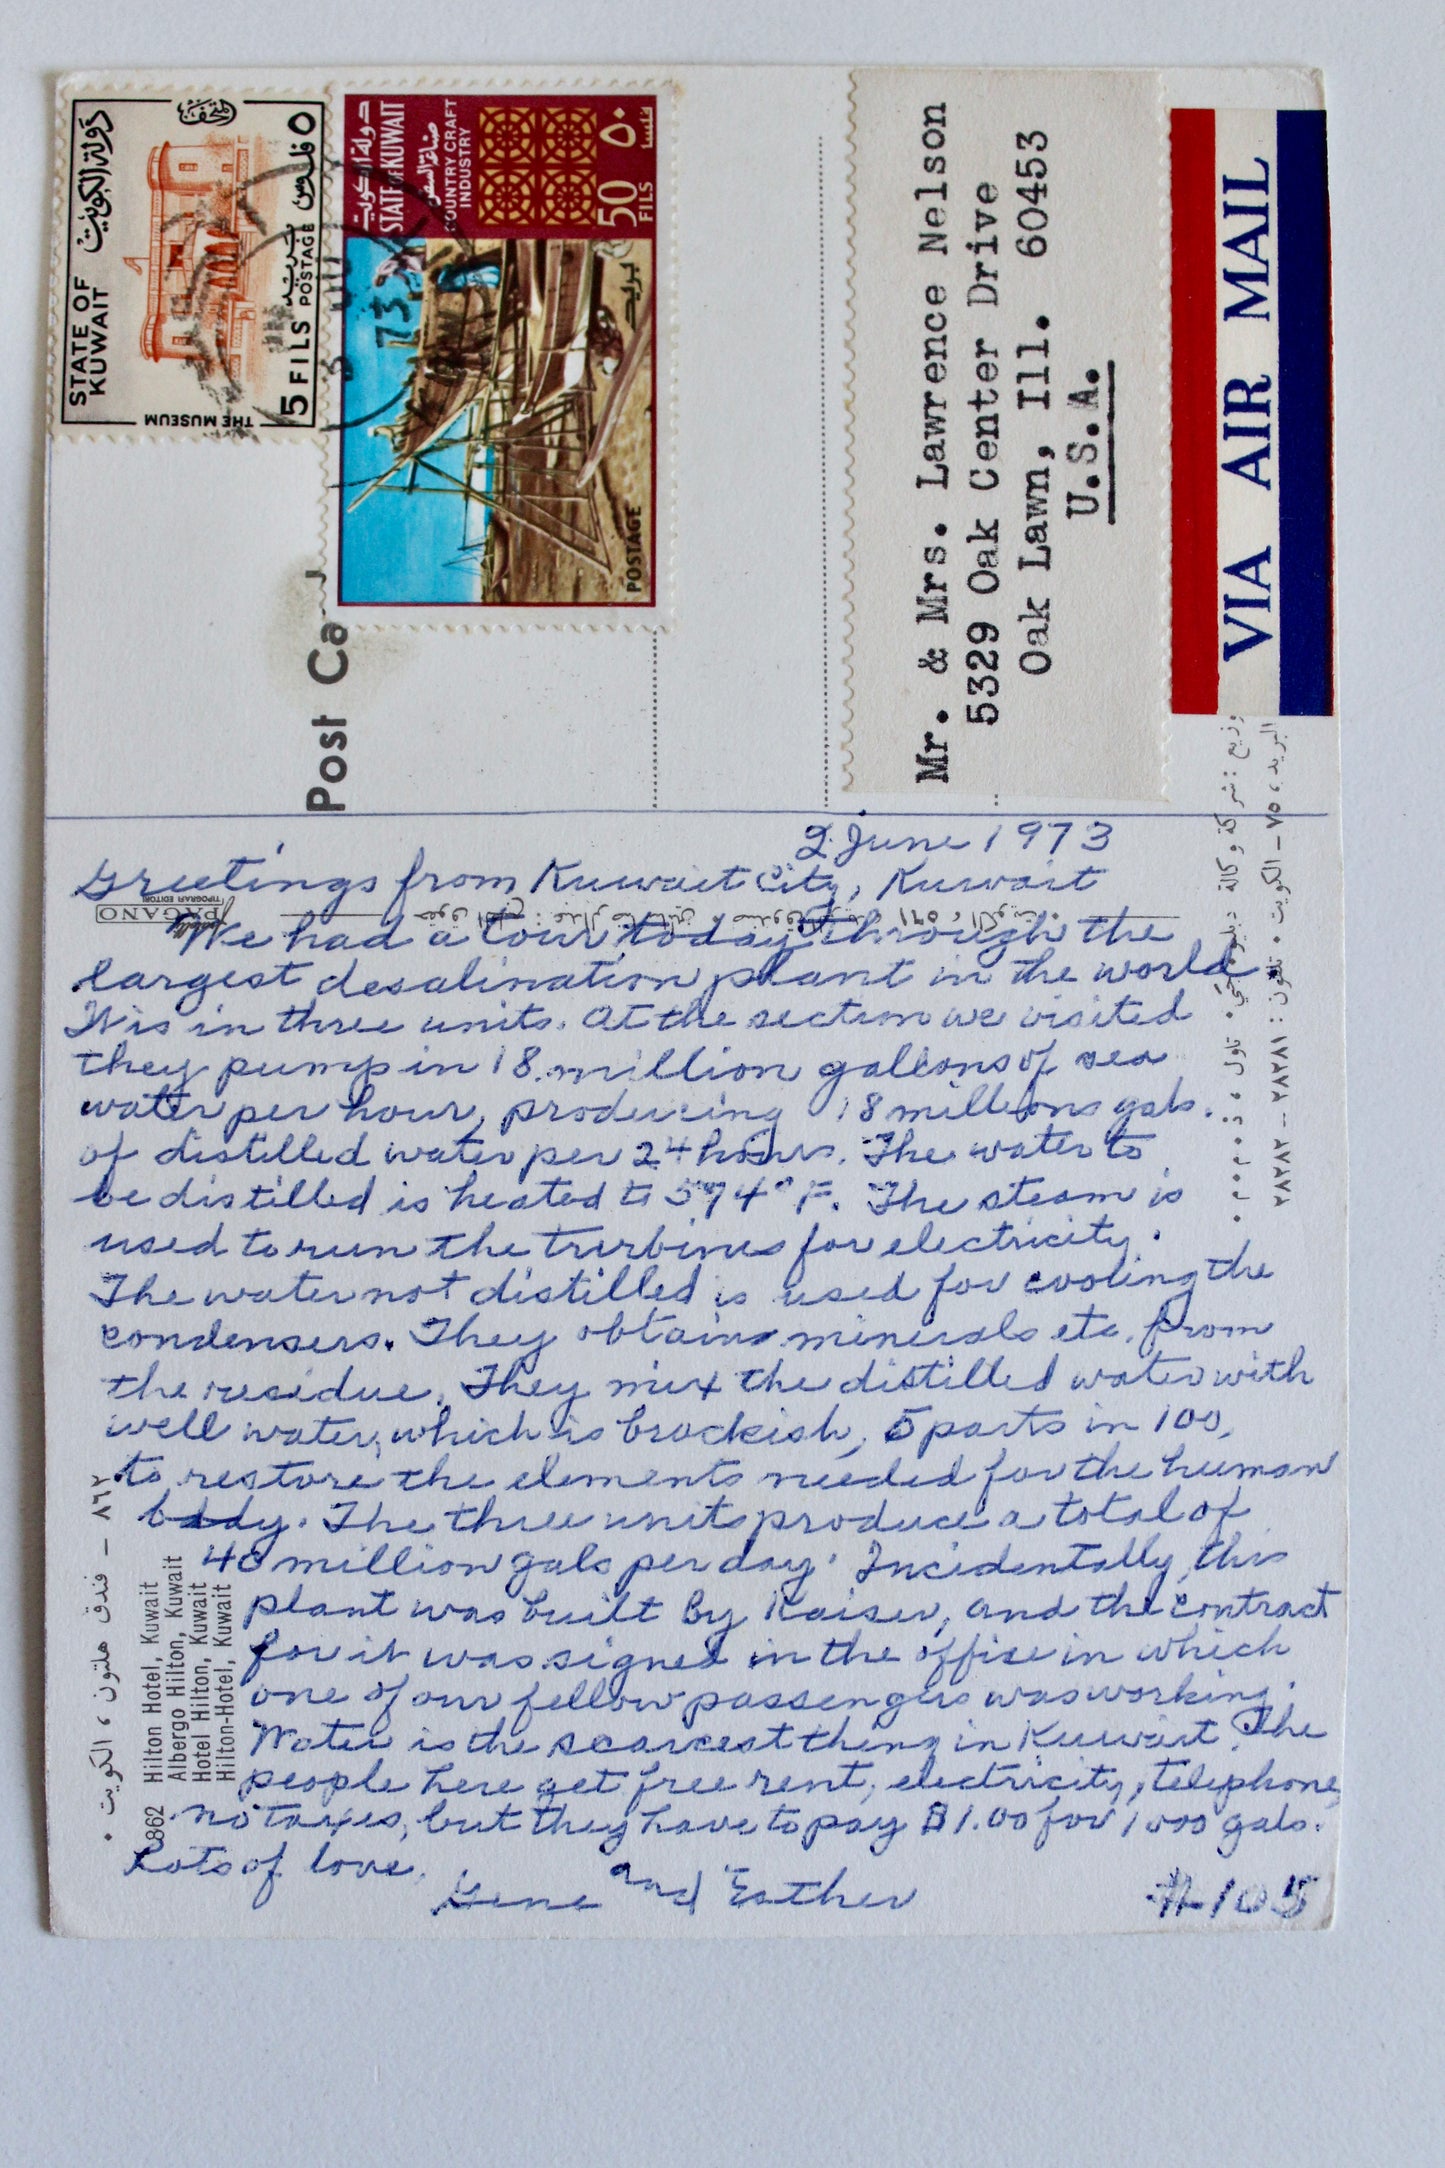 STATE OF
KUWAIT
دولة الكويت
المتحف
THE MUSEUM
5 FILS POSTAGE بريد ٥ فلوس
دولة الكويت
STATE OF KUWAIT
صناعة السفن
COUNTRY CRAFT
INDUSTRY
٥٠ فلسا
50 FILS
بريد
POSTAGE
73
Post Ca
Mr. & Mrs. Lawrence Nelson
5329 Oak Center Drive
Oak Lawn, Ill. 60453
U.S.A.
VIA AIR MAIL
2 June 1973
Greetings from Kuwait City, Kuwait
We had a tour today through the
largest desalination plant in the world.
It is in three units. At the section we visited
they pump in 18 million gallons of sea
water per hour, producing 18 millions gals.
of distilled water per 24 hours. The water to
be distilled is heated to 594° F. The steam is
used to run the turbines for electricity.
The water not distilled is used for cooling the
condensers. They obtain minerals etc. from
the residue. They mix the distilled water with
well water, which is brackish, 5 parts in 100,
to restore the elements needed for the human
body. The three units produce a total of
48 million gals per day. Incidentally, this
plant was built by Kaiser, and the contract
for it was signed in the office in which
one of our fellow passengers was working.
Water is the scarcest thing in Kuwait. The
people here get free rent, electricity, telephone,
no taxes, but they have to pay $1.00 for 1000 gals.
Lots of love,
Gene and Esther
#105
PAGANO
TIPOGRAFI EDITORI
٨٦٢ – فندق هلتون ، الكويت .
862 Hilton Hotel, Kuwait
Albergo Hilton, Kuwait
Hotel Hilton, Kuwait
Hilton-Hotel, Kuwait
البريد ، ٧٥ – الكويت . تلفون : ٢٨٢٨١ – ٢٨٢٨٢